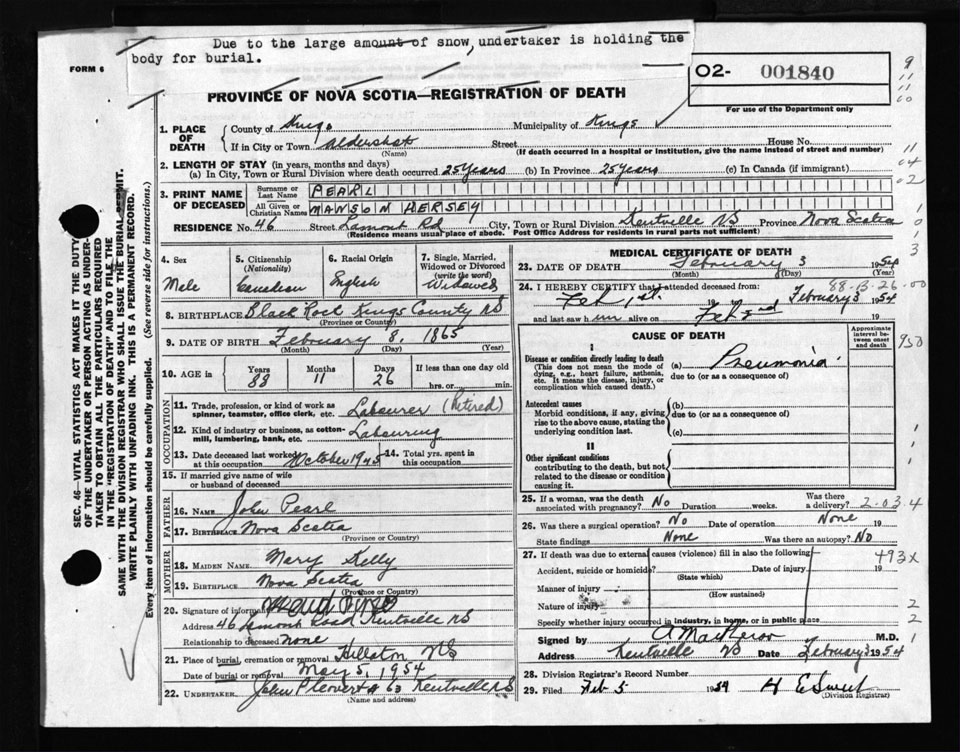 Due to the large amount of snow, undertaker is holding the
body for burial.
FORM 6
02- 001840
For use of the Department only
PROVINCE OF NOVA SCOTIA—REGISTRATION OF DEATH
1. PLACE OF DEATH { County of Kings Municipality of Kings
If in City or Town Aldershot Street House No.
(Name) (If death occurred in a hospital or institution, give the name instead of street and number)
2. LENGTH OF STAY (in years, months and days)
(a) In City, Town or Rural Division where death occurred 25 years (b) In Province 25 years (c) In Canada (if immigrant)
3. PRINT NAME OF DECEASED { Surname or Last Name PEARL
All Given or Christian Names MANSON HERSEY
RESIDENCE No. 46 Street Lamont Rd City, Town or Rural Division Kentville NS Province Nova Scotia
(Residence means usual place of abode. Post Office Address for residents in rural parts not sufficient)
4. Sex Male
5. Citizenship (Nationality) Canadian
6. Racial Origin English
7. Single, Married, Widowed or Divorced (write the word) Widowed
8. BIRTHPLACE Black Rock Kings County NS
(Province or Country)
9. DATE OF BIRTH February 8, 1865
(Month) (Day) (Year)
10. AGE in { Years 88 Months 11 Days 26 If less than one day
hrs. or min.
OCCUPATION
11. Trade, profession, or kind of work as spinner, teamster, office clerk, etc. Labourer (retired)
12. Kind of industry or business, as cotton-mill, lumbering, bank, etc. Labouring
13. Date deceased last worked at this occupation October 1945
14. Total yrs. spent in this occupation
15. If married give name of wife or husband of deceased
FATHER
16. NAME John Pearl
17. BIRTHPLACE Nova Scotia
(Province or Country)
MOTHER
18. MAIDEN NAME Mary Kelly
19. BIRTHPLACE Nova Scotia
(Province or Country)
20. Signature of informant
Address 46 Lamont Road Kentville NS
Relationship to deceased None
21. Place of burial, cremation or removal Hillaton NS
Date of burial or removal May 5, 1954
22. UNDERTAKER John P 63 Kentville NS
(Name and address)
MEDICAL CERTIFICATE OF DEATH
23. DATE OF DEATH February 3 1954
(Month) (Day) (Year)
88-13-26-00
24. I HEREBY CERTIFY that I attended deceased from:
Feb 1st. 19 to February 3 1954
and last saw him alive on Feb 2nd 19
CAUSE OF DEATH
Approximate interval between onset and death
I
Disease or condition directly leading to death
(This does not mean the mode of dying, e.g., heart failure, asthenia, etc. It means the disease, injury, or complication which caused death.)
(a) Pneumonia
due to (or as a consequence of)
Antecedent causes
Morbid conditions, if any, giving rise to the above cause, stating the underlying condition last.
(b)
due to (or as a consequence of)
(c)
II
Other significant conditions
contributing to the death, but not related to the disease or condition causing it.
25. If a woman, was the death associated with pregnancy? No Duration weeks. Was there a delivery? 2-03 4
26. Was there a surgical operation? No Date of operation None 19
State findings None Was there an autopsy? No
27. If death was due to external causes (violence) fill in also the following: 493x
Accident, suicide or homicide? Date of injury 19
(State which)
Manner of injury
(How sustained)
Nature of injury
Specify whether injury occurred in industry, in home, or in public place
Signed by M.D.
Address Kentville NS Date February 3 1954
28. Division Registrar's Record Number
29. Filed Feb 5 1954 H E Sweet
(Division Registrar)
SEC. 46—VITAL STATISTICS ACT MAKES IT THE DUTY
OF THE UNDERTAKER OR PERSON ACTING AS UNDER-
TAKER TO OBTAIN ALL THE PARTICULARS REQUIRED
IN THE "REGISTRATION OF DEATH" AND TO FILE THE
SAME WITH THE DIVISION REGISTRAR WHO SHALL ISSUE THE BURIAL PERMIT.
WRITE PLAINLY WITH UNFADING INK. THIS IS A PERMANENT RECORD.
Every item of information should be carefully supplied. (See reverse side for instructions.)